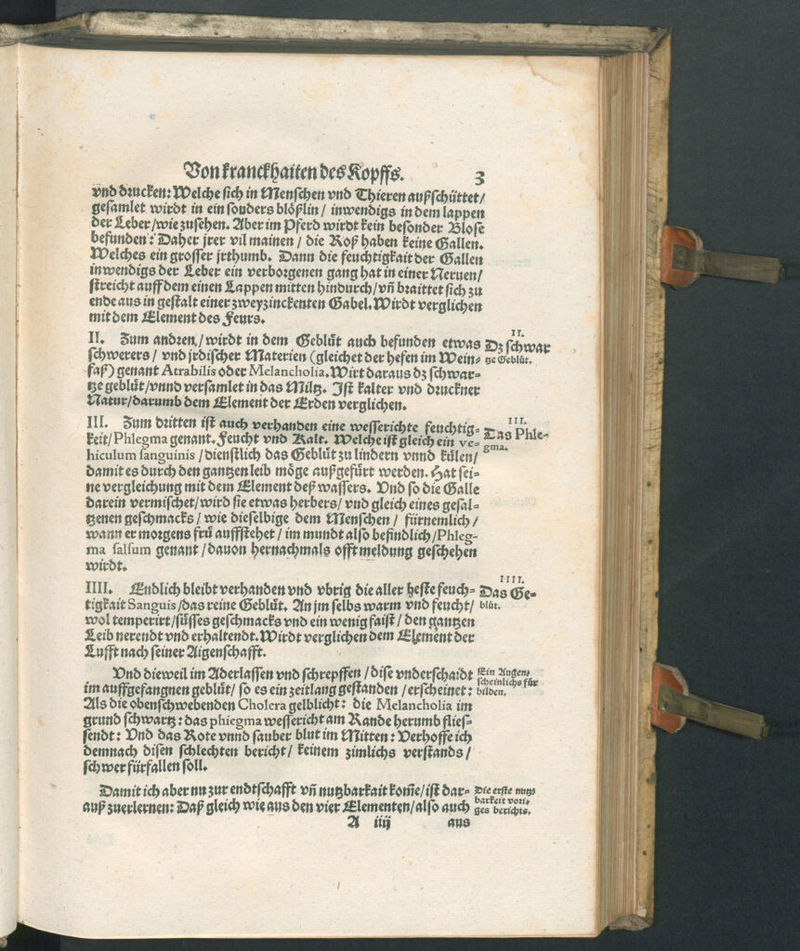 Von kranckhaiten des Kopffs. 3
vnd drucken: Welche sich in Menschen vnd Thieren außschüttet/
gesamlet wirdt in ein sonders blößlin / inwendigs in dem lappen
der Leber/wie zusehen. Aber im Pferd wirdt kein besonder Blose
befunden: Daher jrer vil mainen / die Roß haben keine Gallen.
Welches ein grosser jrthumb. Dann die feuchtigkait der Gallen
inwendigs der Leber ein verborgenen gang hat in einer Neruen/
streicht auff dem einen Lappen mitten hindurch/ vn̄ braittet sich zu
ende aus in gestalt einer zweyzinckenten Gabel. Wirdt verglichen
mit dem Element des Feurs.
II. Zum andren/ wirdt in dem Geblüt auch befunden etwas
schwerers / vnd jrdischer Materien (gleichet der hefen im Wein-
faß) genant Atrabilis oder Melancholia. Wirt daraus dz schwar-
tze geblüt/vnnd versamlet in das Miltz. Ist kalter vnd druckner
Natur/darumb dem Element der Erden verglichen.
II.
Dz schwar
tze Geblüt.
III. Zum dritten ist auch verhanden eine wesserichte feuchtig-
keit/Phlegma genant. Feucht vnd Kalt. Welche ist gleich ein ve-
hiculum sanguinis /dienstlich das Geblüt zu lindern vnnd külen/
damit es durch den gantzen leib möge außgefürt werden. Hat sei-
ne vergleichung mit dem Element deß wassers. Vnd so die Galle
darein vermischet/wird sie etwas herbers/ vnd gleich eines gesal-
tzenen geschmacks / wie dieselbige dem Menschen / fürnemlich /
wann er morgens frü auffstehet / im mundt also befindlich/Phleg-
ma salsum genant /dauon hernachmals offt meldung geschehen
wirdt.
III.
Das Phle-
gma.
IIII. Endlich bleibt verhanden vnd vbrig die aller beste feuch-
tigkait Sanguis/das reine Geblüt. An jm selbs warm vnd feucht/
wol temperirt/süsses geschmacks vnd ein wenig faist/ den gantzen
Leib nerendt vnd erhaltendt. Wirdt verglichen dem Element der
Lufft nach seiner Aigenschafft.
IIII.
Das Ge-
blüt.
Vnd dieweil im Aderlassen vnd schrepffen / dise vnderschaidt
im auffgefangnen geblüt/ so es ein zeitlang gestanden / erscheinet:
Als die obenschwebenden Cholera gelblicht: die Melancholia im
grund schwartz: das phlegma wessericht am Rande herumb flies-
sendt: Vnd das Rote vnnd sauber blut im Mitten: Verhoffe ich
demnach disen schlechten bericht/ keinem zimlichs verstands/
schwer fürfallen soll.
Ein Augen-
scheinlichs für
bilden.
Damit ich aber nu zur endtschafft vn̄ nutzbarkait kom̄e/ist dar-
auß zuerlernen: Daß gleich wie aus den vier Elementen/also auch
Die erste nutz-
barkeit vori-
ges berichts.
A iiij aus